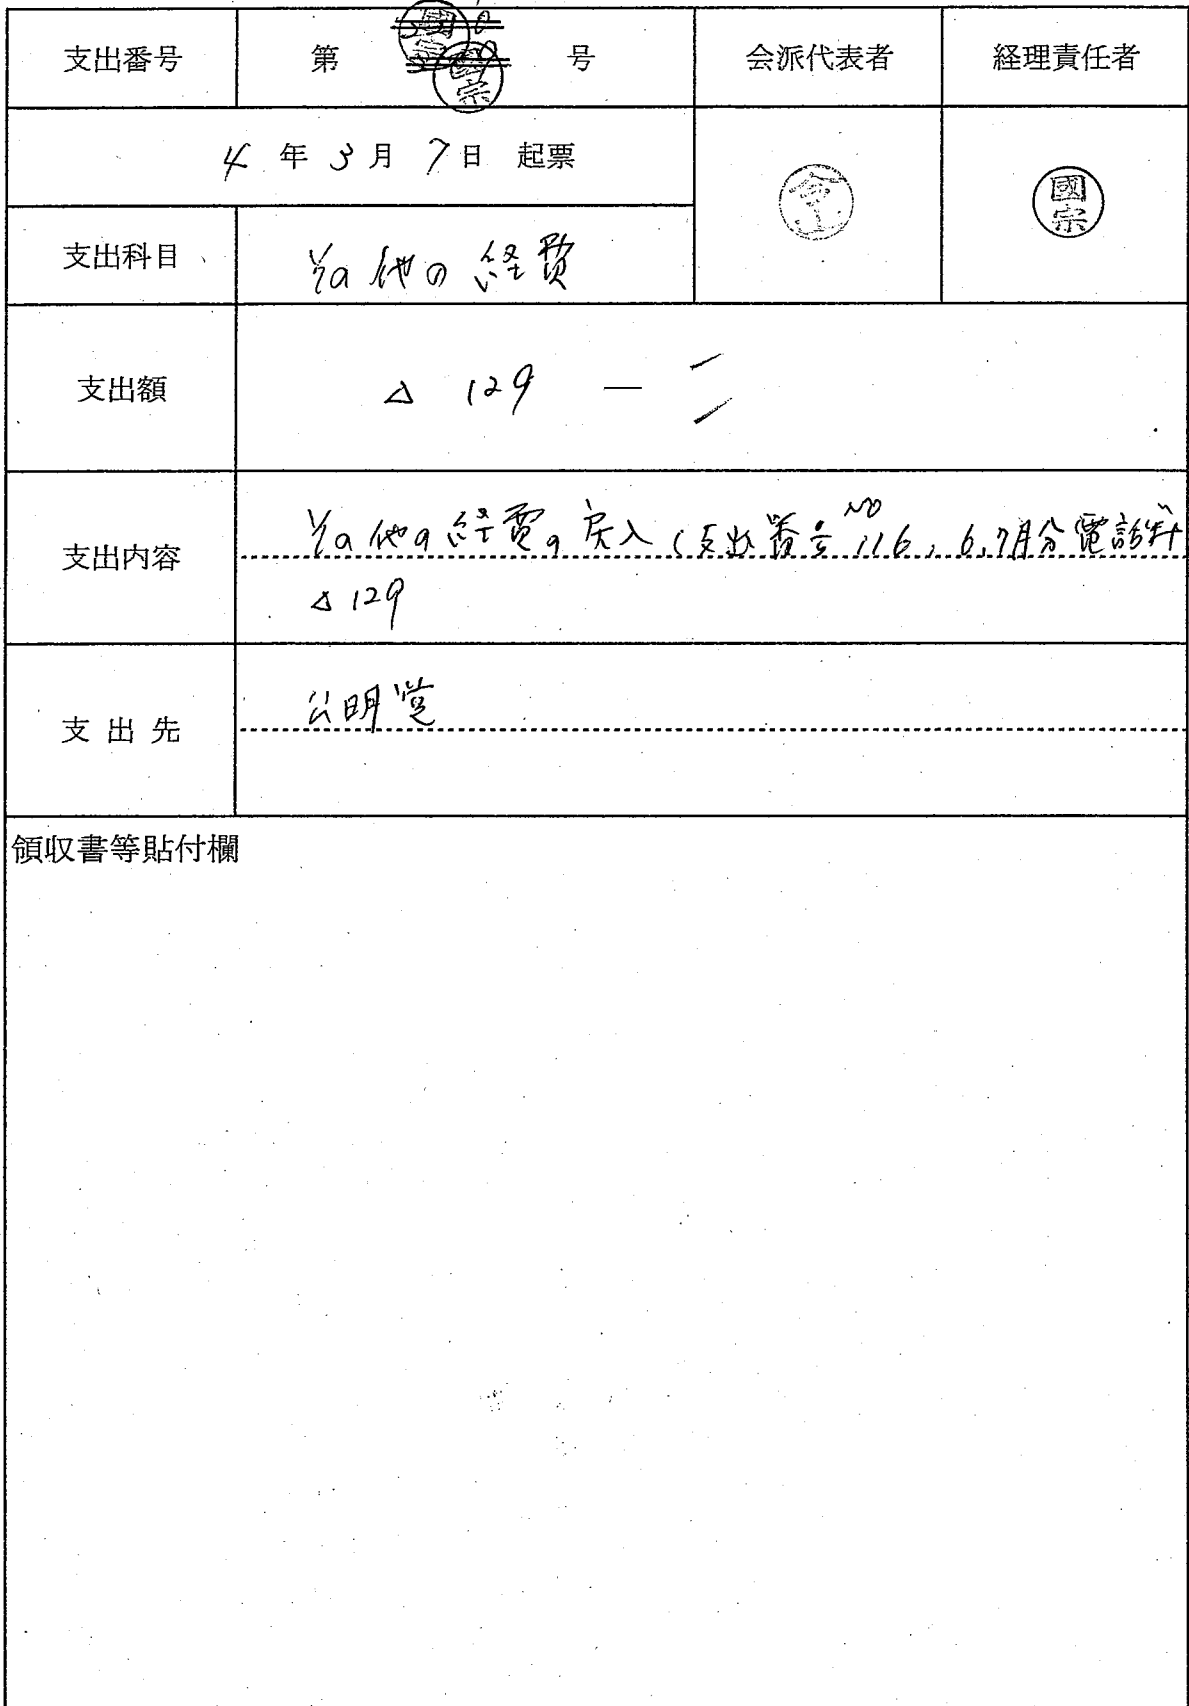 支出番号 第 号 会派代表者 経理責任者
4年3月7日 起票
國宗
支出科目 その他の経費
支出額 △ 129 —
支出内容 その他の経費の戻入(支出番号 No 116, 6,7月分電話料
△129
支出先 公明党
領収書等貼付欄